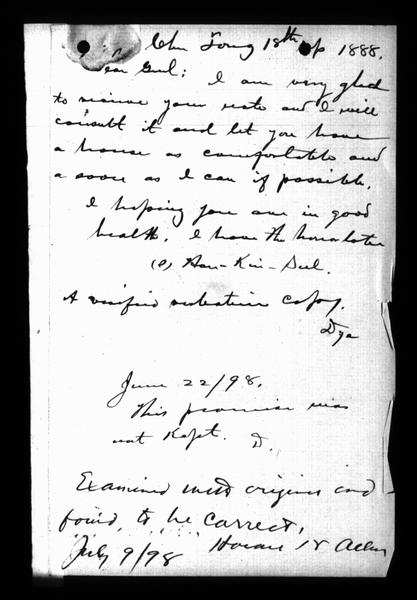 18th 1888.
Dear Genl: I am very glad
to receive your note and I will
consult it and let you have
a house as comfortable and
a soon as I can if possible.
I hoping you are in good
health. I have the honor later
(s) Han-Kin-Sul.
A verified verbatim copy.
Dye
June 22/98.
This promise was
not Kept. D.
Examined with original and
found to be correct.
July 9/98 Horace N Allen